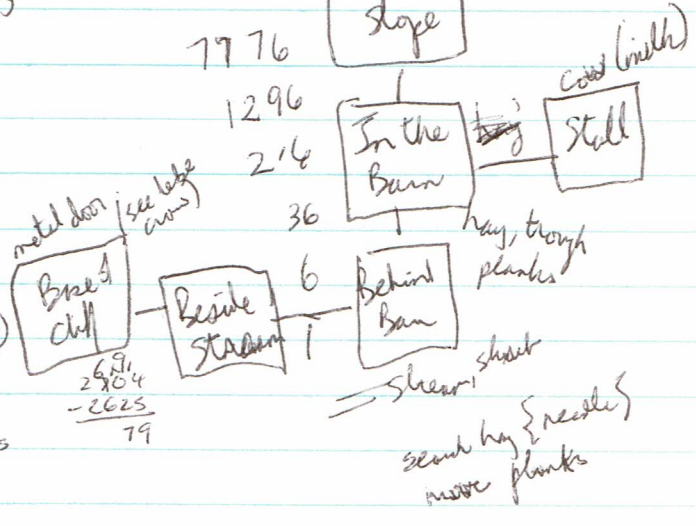 Slope
7776
1296
216
36
6
1
In the
Barn
cow (milk)
Stall
hay, trough
planks
metal door
(see
Base of
cliff
Beside
Stream
Behind
Barn
2704
-2625
79
stream,
search hay {needle}
move planks